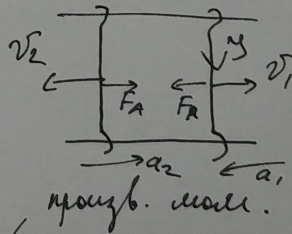 v₂ F_A F_A v₁
y
a₂ a₁
произв. мом.